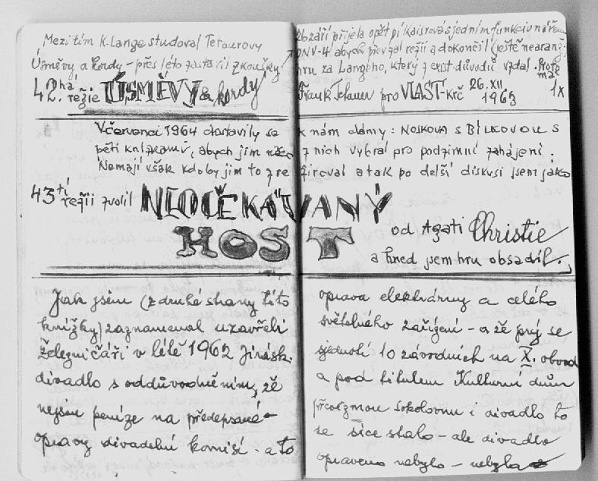 Mezi tím K. Lange studoval Teraurovy
Úsměvy a Kordy - přes léto zastavil zkoušky!
42.há režie ÚSMĚVY a kordy
V září přijela opět pí Kaisrová s jedním funkcionářem
ZONV-4 abych převzal režii a dokončil (ještě nearanž.
hru za Langeho, který z exist. důvodů vzdal. Proto
pro VLAST-Krč 26.XII 1963 1x
V červenci 1964 dostavily se
k nám dámy: NOSKOVÁ S BÍLKOVOU S
pěti knížkami, abych jim něco
z nich vybral pro podzimní zahájení.
Nemají však kdo by jim to zre
žíroval a tak po delší diskusi jsem jako
43tí režii zvolil NEOČEKÁVANÝ
HOST
od Agati Christie
a hned jsem hru obsadil.
Jak jsem (z druhé strany této
knížky) zaznamenal uzavřeli
železničáři v létě 1962 Jirásk.
divadlo s odůvodněním, že
nejsou peníze na předepsané
opravy divadelní komisí - a to
oprava elektrárny a celého
světelného zařízení - a že prý se
sjednotí 10 závodních na X. obvod
a pod titulem Kulturní dům
převezmou sokolovnu i divadlo to
se sice stalo - ale divadlo
opraveno nebylo - nebylo